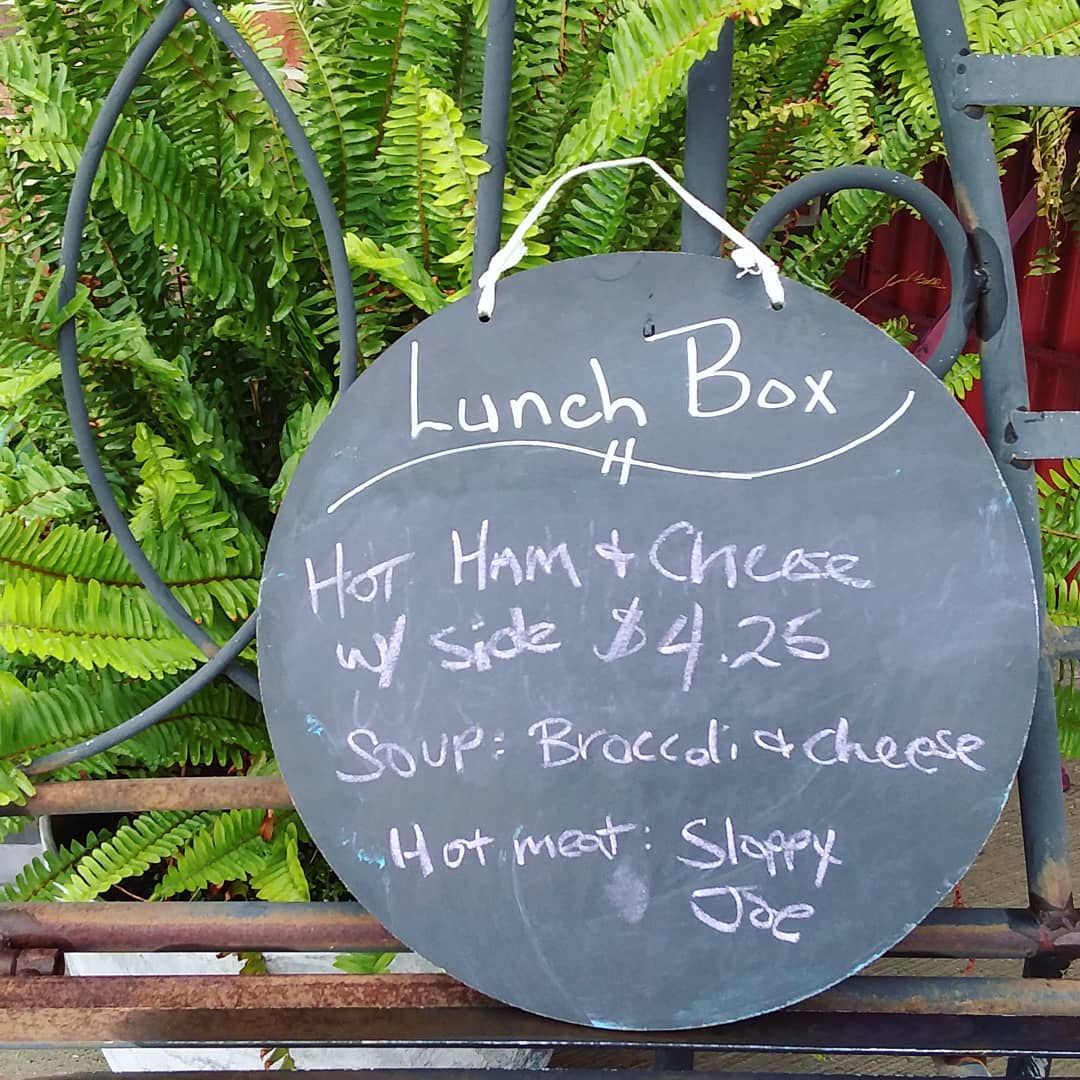 Lunch Box
Hot Ham & Cheese
w/ side $4.25
Soup: Broccoli & cheese
Hot meat: Sloppy
Joe